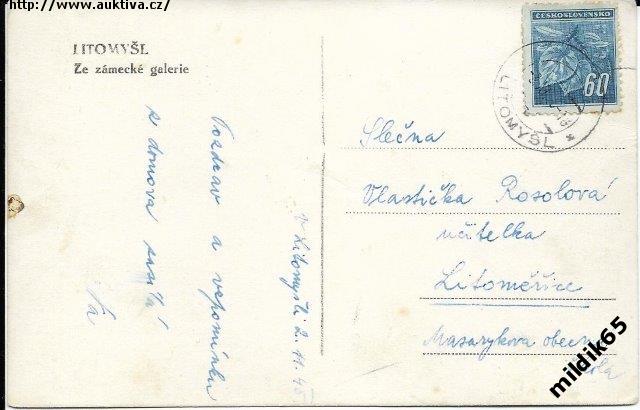 http://www.auktiva.cz/
LITOMYŠL
Ze zámecké galerie
V Litomyšli 2. 11. 45
Pozdrav a vzpomínku
z domova zasílá
ČESKOSLOVENSKO
60
LITOMYŠL
Slečna
Vlastička Rosolová
učitelka
Litoměřice
Masarykova obecn
škola
mildik65